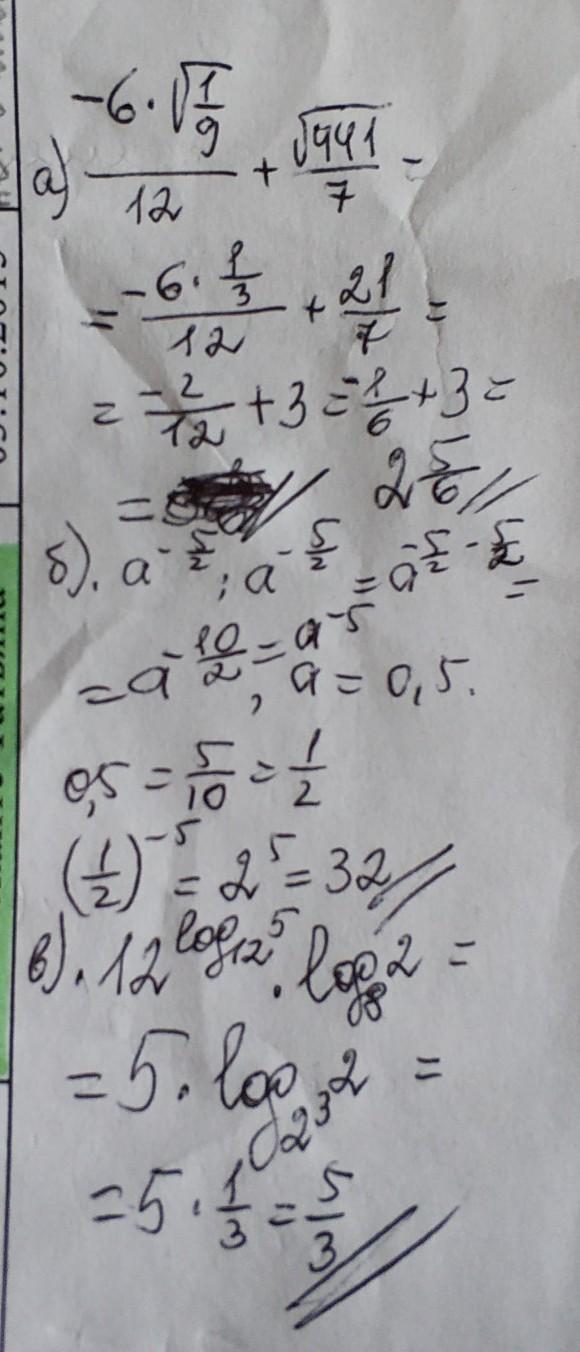 а) (-6 · √(1/9))/12 + √441/7 =
= (-6 · 1/3)/12 + 21/7 =
= -2/12 + 3 = -1/6 + 3 =
= 2 5/6
б). a^(-5/2) : a^(-5/2) = a^(-5/2 - 5/2) =
= a^(-10/2) = a^(-5), a = 0,5.
0,5 = 5/10 = 1/2
(1/2)^(-5) = 2^5 = 32
в). 12^(log₁₂5) · log₈2 =
= 5 · log_(2^3) 2 =
= 5 · 1/3 = 5/3